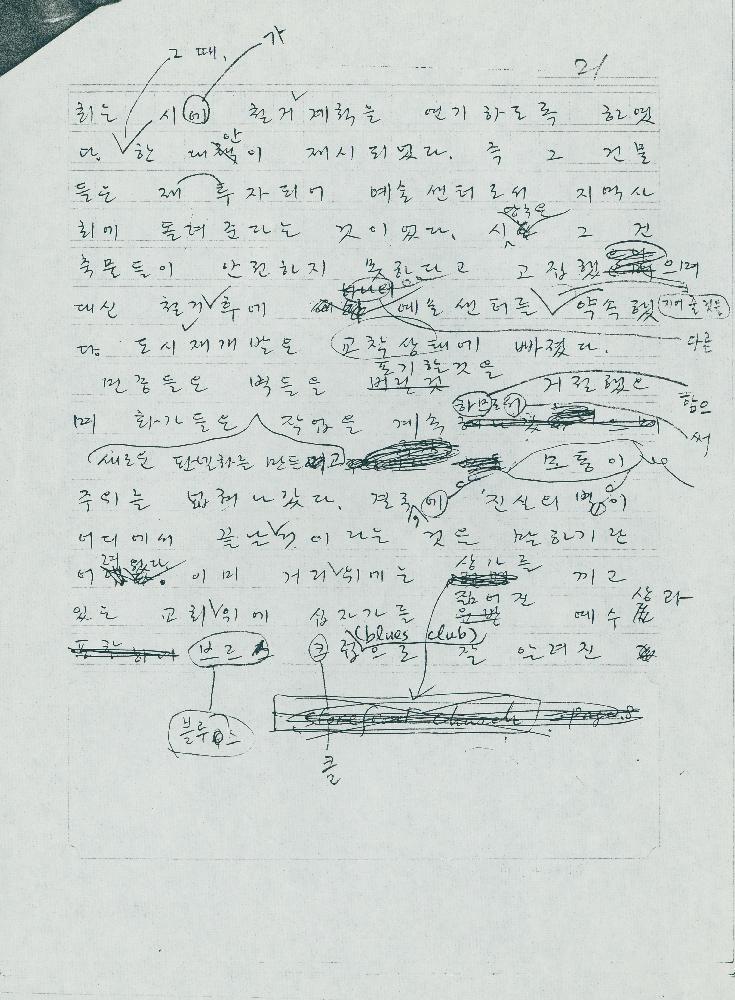 그 때, 가
21
회는 시에 철거 계획을 연기하도록 하였
다. 한 대안이 제시되었다. 즉 그 건물
들은 재투자되어 예술센터로서 지역사
회에 돌려준다는 것이었다. 시 당국은 그 건
축물들이 안전하지 못하다고 고집했으며
대신 철거 후에 예술센터를 약속했 지어줄 것을
다. 도시재개발은 교착상태에 빠졌다. 다른
포기할 것을
민중들은 벽들을 버린 것 거절했으 함으
며 화가들은 작업을 계속 하므로써 써
새로운 판벽화를 만들 모퉁이
주위를 넓혀 나갔다. 결국 에 '진실의 벽'이
어디에서 끝날 것이라는 것을 말하기란
어려웠다. 이미 거리 위에는 상가를 끼고
있는 교회 위에 십자가를 짊어진 예수 상과
(blues club)
브르 크럽으로 잘 알려진
블루스 storefront church
클